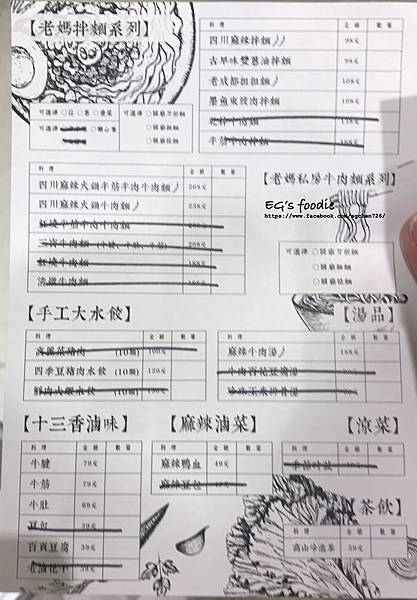 【老媽拌麵系列】
料理 金額 數量
四川麻辣拌麵 98元
古早味雙蔥油拌麵 98元
老成都担担麵 108元
墨魚東坡肉拌麵 108元
炸醬牛肉拌麵 138元
半筋牛肉拌麵 168元
可選擇 ○蒜 ○蔥 ○香菜
可選擇 ○糖心蛋
可選擇 ○關廟刀削麵
○關廟細麵
○關廟拉麵
【老媽私房牛肉麵系列】
料理 金額 數量
四川麻辣火鍋半筋半肉牛肉麵 268元
四川麻辣火鍋牛肉麵 238元
紅燒半筋半肉牛肉麵
三寶牛肉麵 (牛腱、牛肚、牛筋)
紅燒牛肉麵 188元
清燉牛肉麵
EG's foodie
https://www.facebook.com/egchen726/
可選擇 ○關廟刀削麵
○關廟細麵
○關廟拉麵
【手工大水餃】
料理 金額 數量
高麗菜豬肉 (10顆) 100元
四季豆豬肉水餃 (10顆) 120元
鮮肉大蝦水餃 (10顆)
【湯品】
料理 金額 數量
麻辣牛肉湯 168元
牛肉百花豆腐湯
珍珠玉米排骨湯
【十三香滷味】
料理 金額 數量
牛腱 79元
牛筋 79元
牛肚 69元
豆包 39元
百頁豆腐 39元
老滷花干 39元
【麻辣滷菜】
料理 金額 數量
麻辣鴨血 49元
麻辣豆包
【涼菜】
料理 金額 數量
【茶飲】
料理 金額 數量
高山冷泡茶 59元